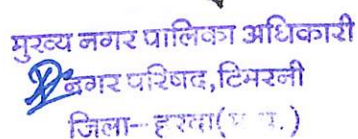 मुख्य नगर पालिका अधिकारी
नगर परिषद,टिमरनी
जिला-हरदा(म.प्र.)